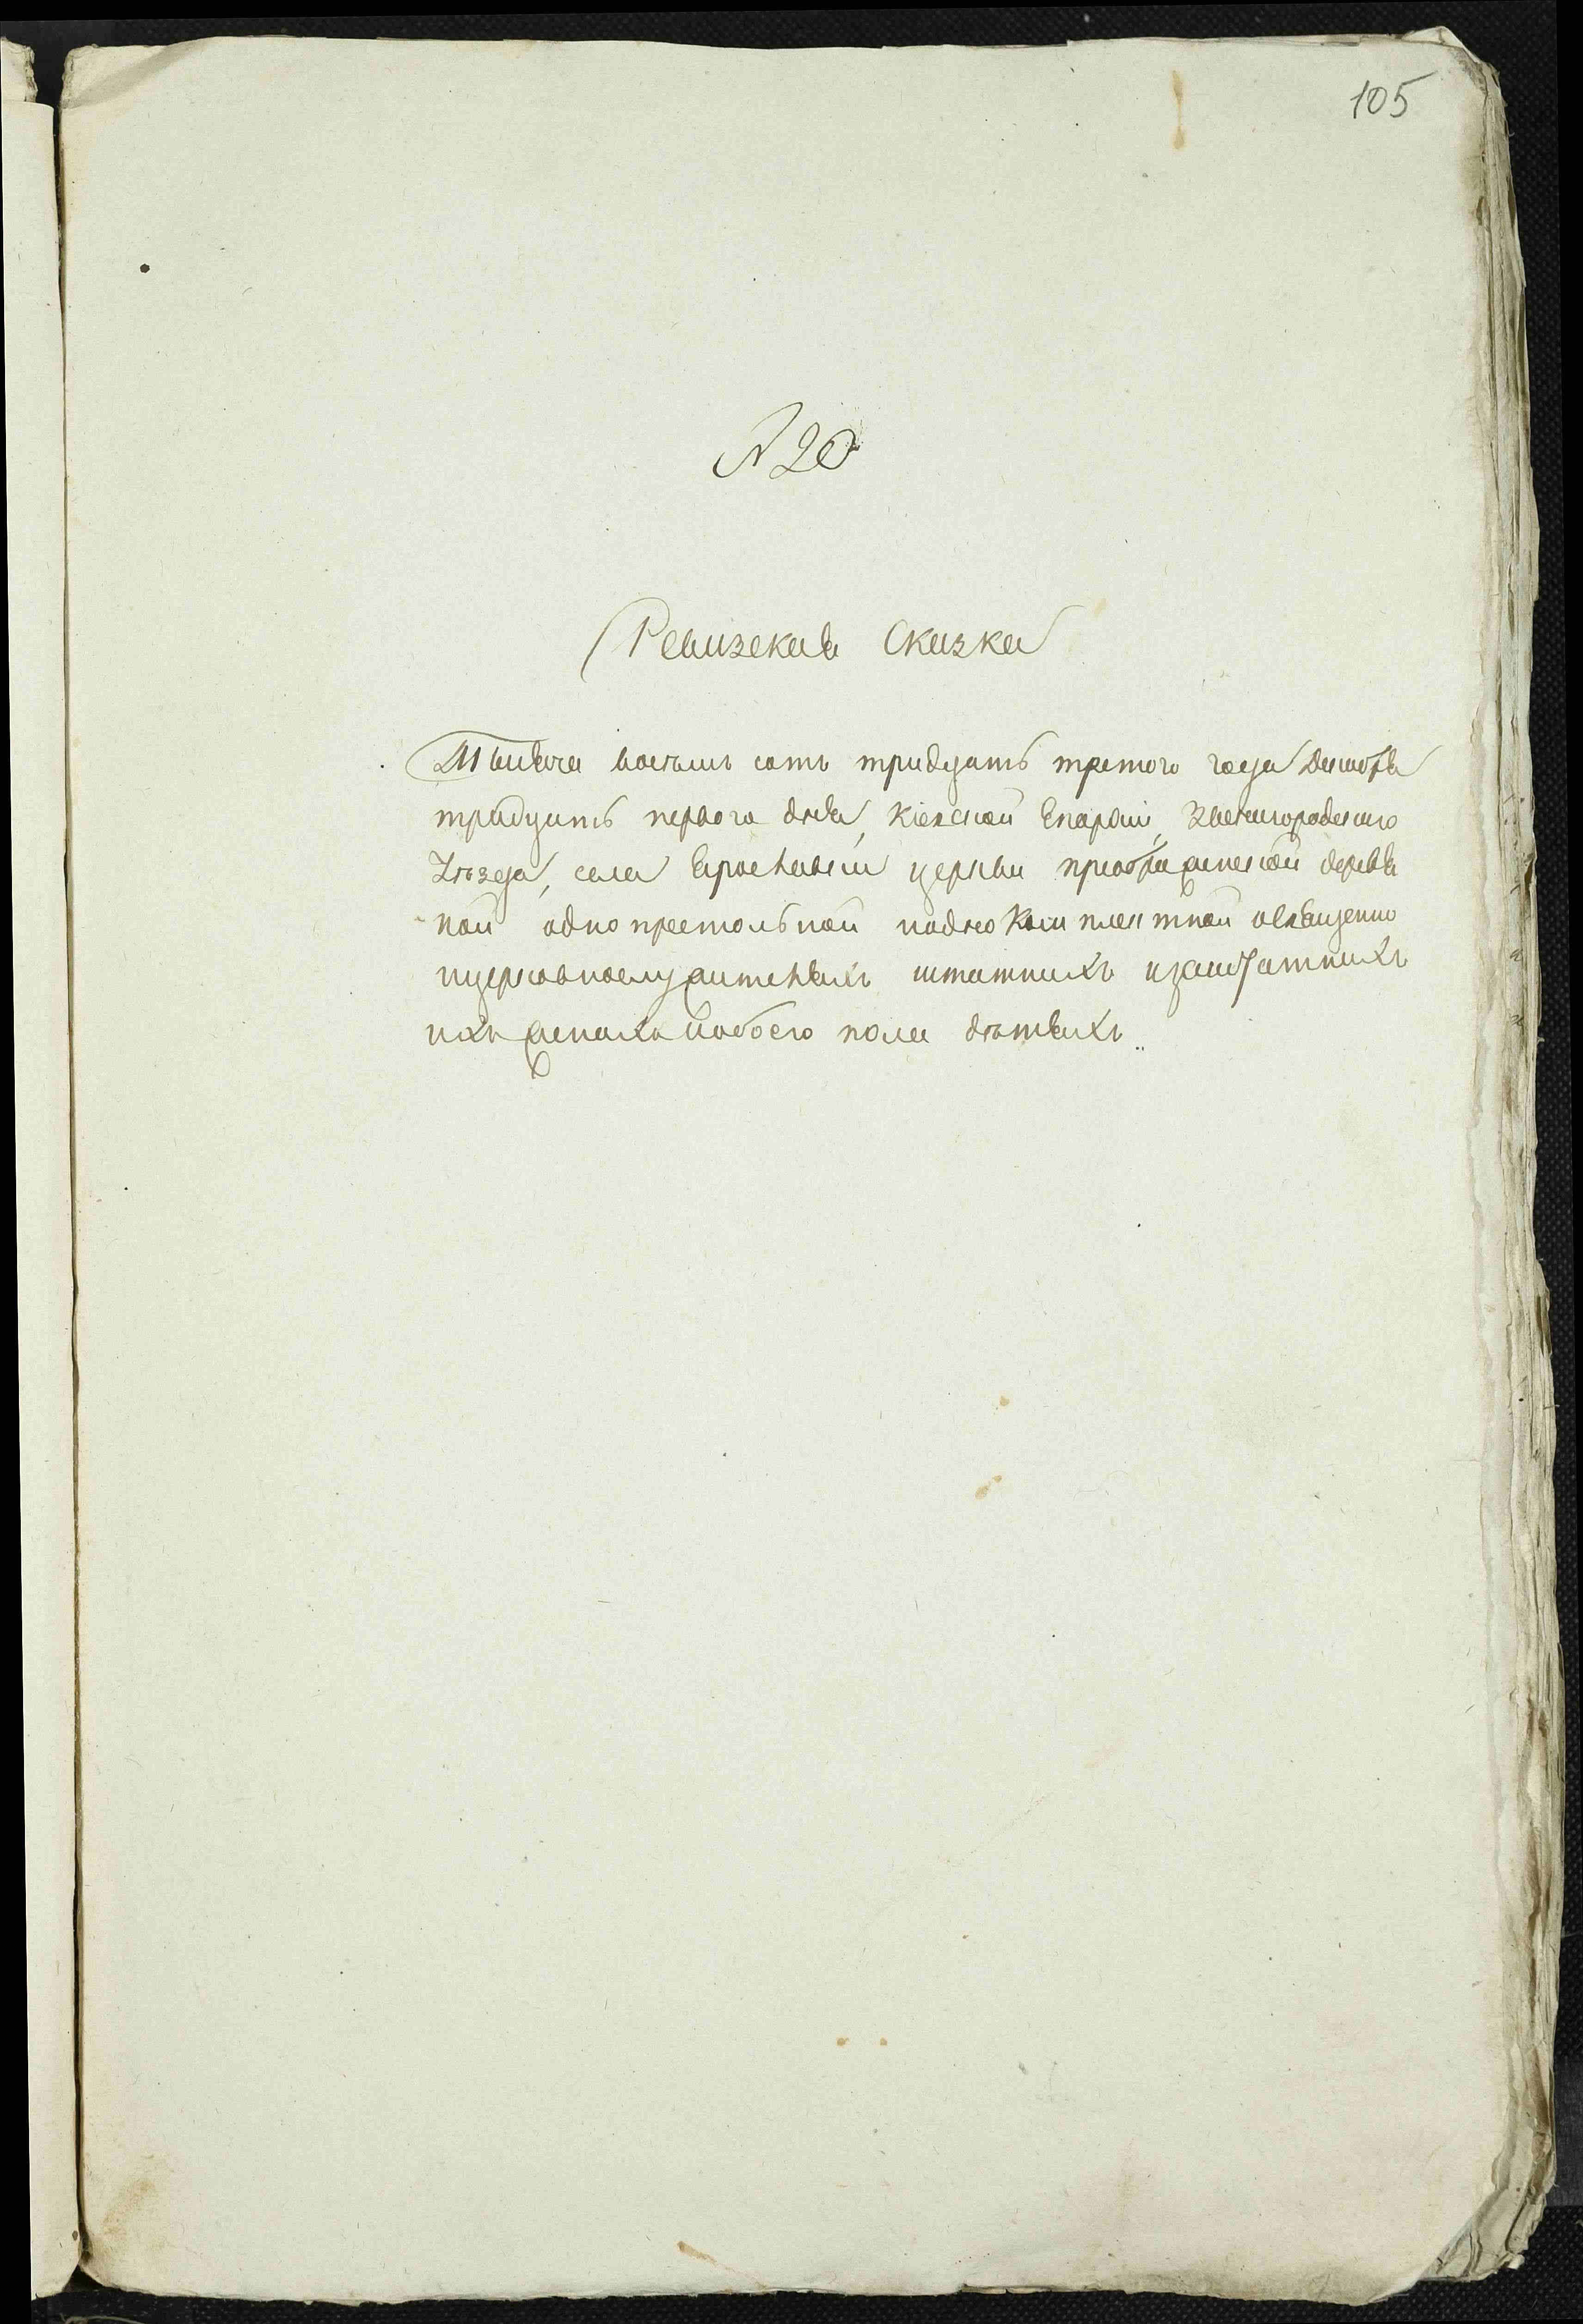 105
№ 20
Ревизская Сказка
Тысяча восемь сотъ тридцать третого года Декабря
тридцать первого дня, Кіевской Епархіи, Звенигородского
Уѣзда, села церкви преображенской деревя
ной одно престольной подно комплектной освященно
ицерковнослужителяхъ штатныхъ изаштатныхъ
ихъ женахъ иобоего пола дѣтяхъ..